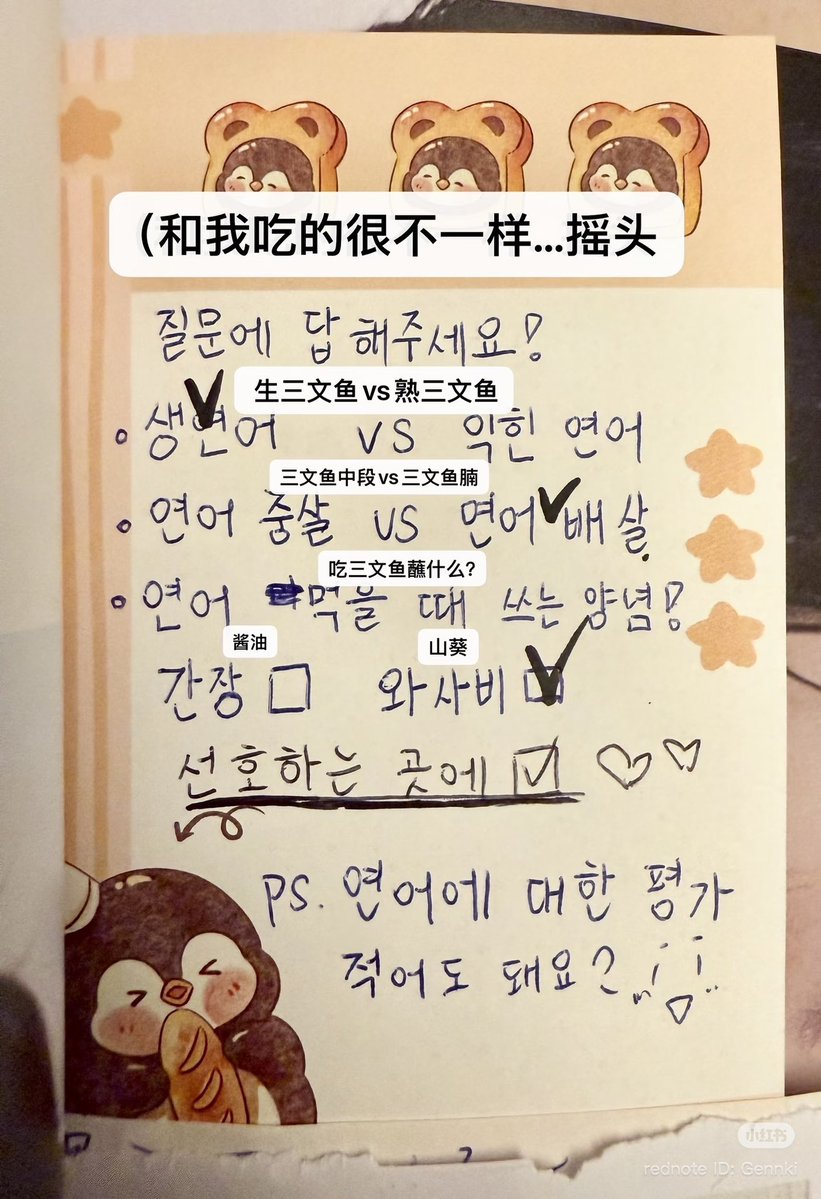 （和我吃的很不一样...摇头
질문에 답해주세요!
生三文鱼vs熟三文鱼
생연어 VS 익힌 연어
三文鱼中段vs三文鱼腩
연어 중살 VS 연어 배살
吃三文鱼蘸什么?
연어 먹을 때 쓰는 양념!
酱油 山葵
간장 와사비
선호하는 곳에
PS. 연어에 대한 평가
적어도 돼요?
小红书
rednote ID: Gennki